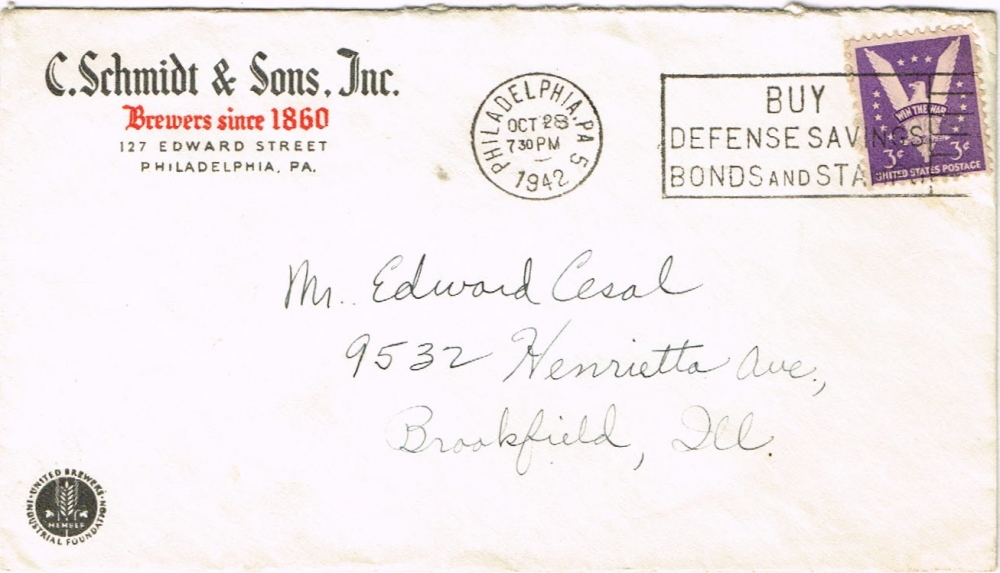 C. Schmidt & Sons, Inc.
Brewers since 1860
127 EDWARD STREET
PHILADELPHIA, PA.
PHILADELPHIA, PA 5
OCT 28
7 30 PM
1942
BUY
DEFENSE SAVINGS
BONDS AND STA
WIN THE WAR
3¢ 3¢
UNITED STATES POSTAGE
Mr. Edward Cesal
9532 Henrietta Ave.,
Brookfield, Ill.
UNITED BREWERS
INDUSTRIAL FOUNDATION
MEMBER